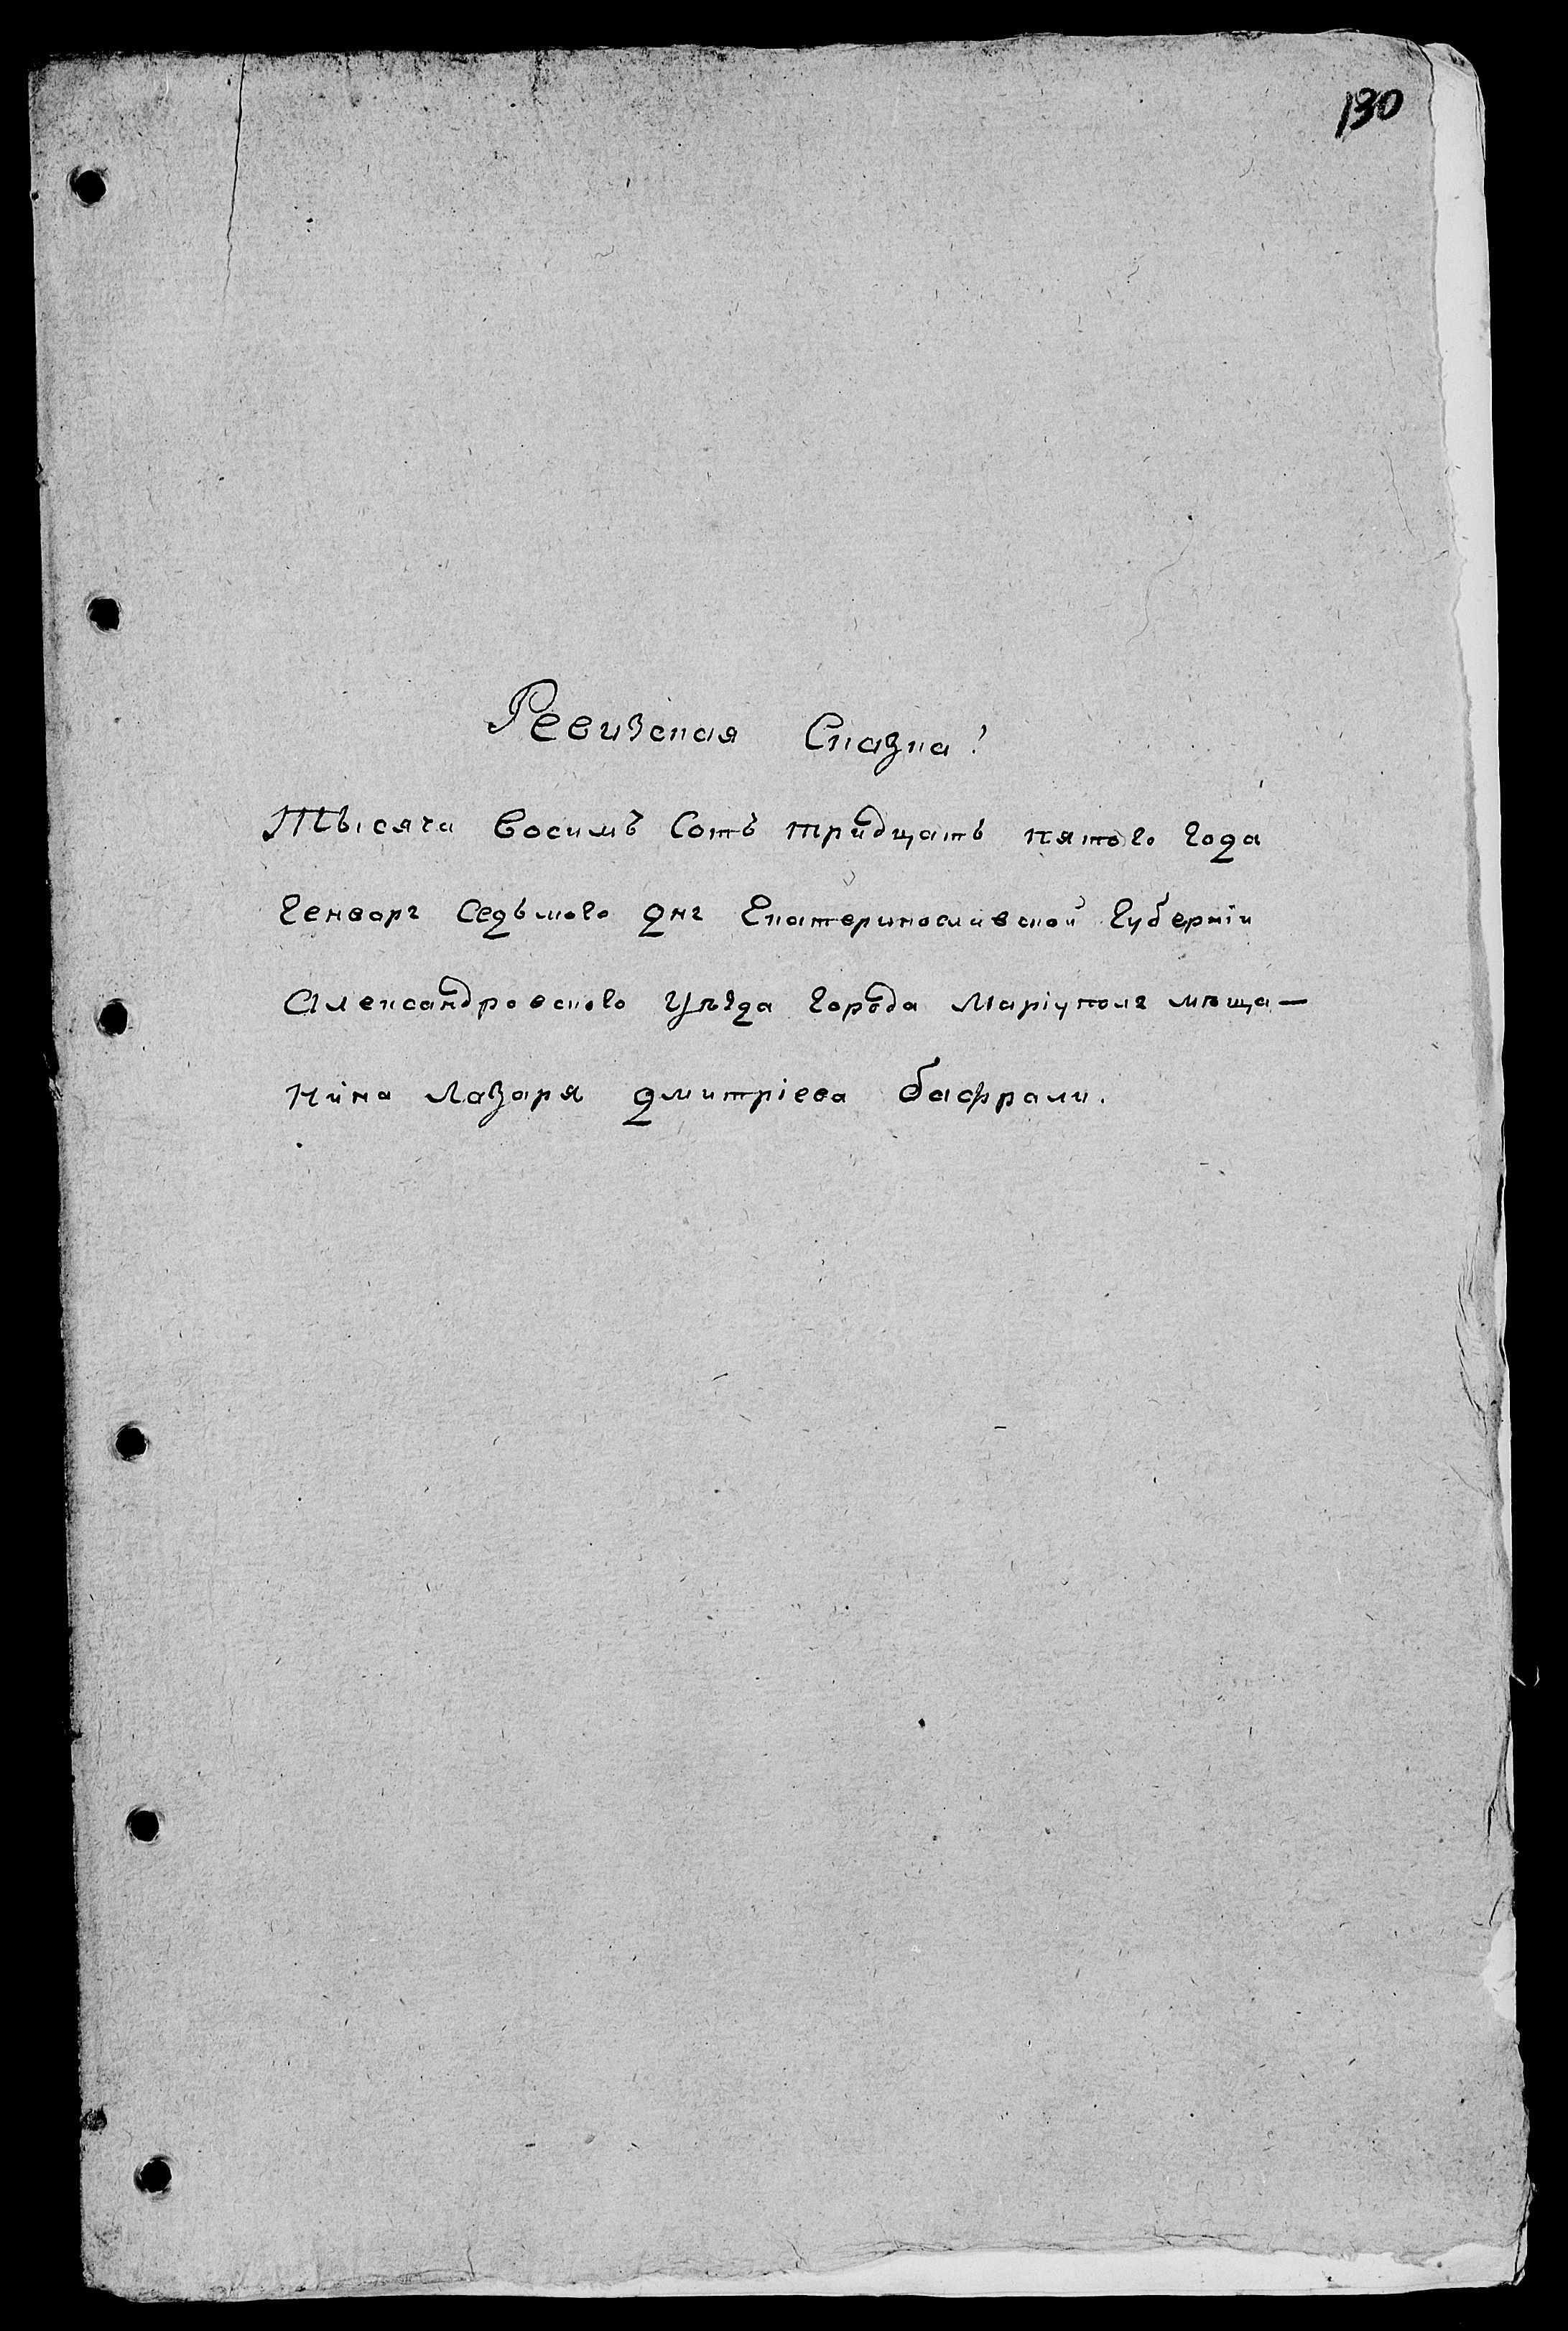 130
Ревизская Сказка!
Тысяча восимъ Сотъ тридцать пятого года
Генваря Седьмого дня Екатеринославской Губерніи
Александровского Уѣзда города Маріуполя мѣща—
нина Лазаря Дмитріева бафрали.